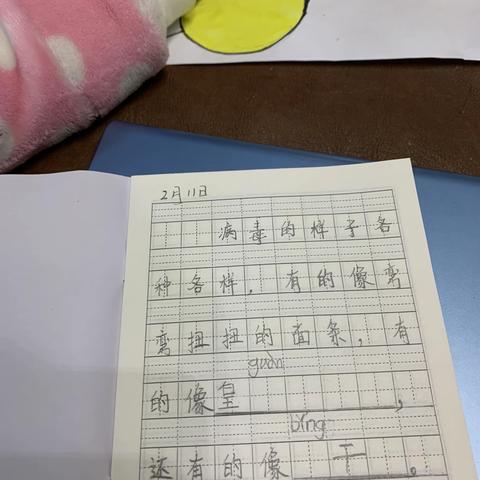 2月11日
病毒的样子各
种各样，有的像弯
弯扭扭的面条，有
guān
的像皇，
bǐng
还有的像 干。